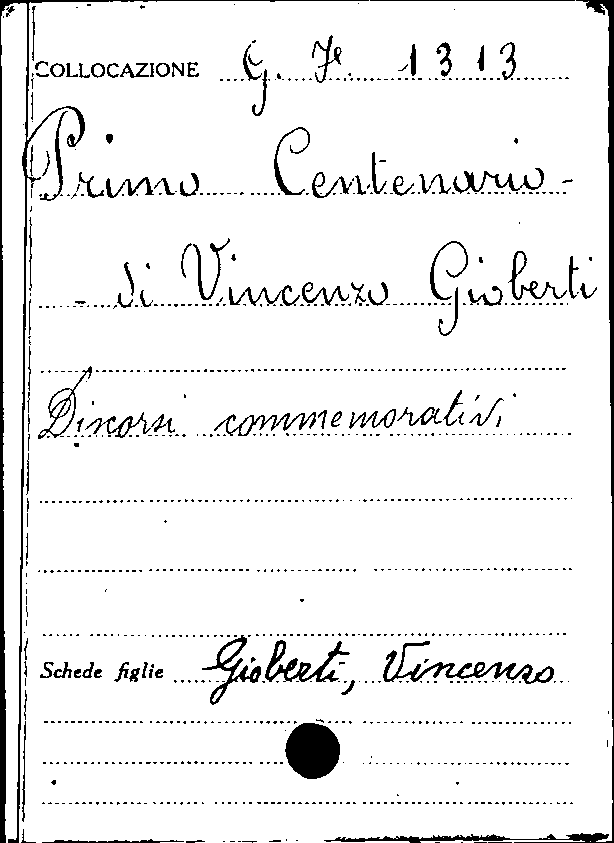 COLLOCAZIONE G. Je. 1313
Primo Centenario -
- di Vincenzo Gioberti
Discorsi commemorativi
Schede figlie Gioberti, Vincenzo